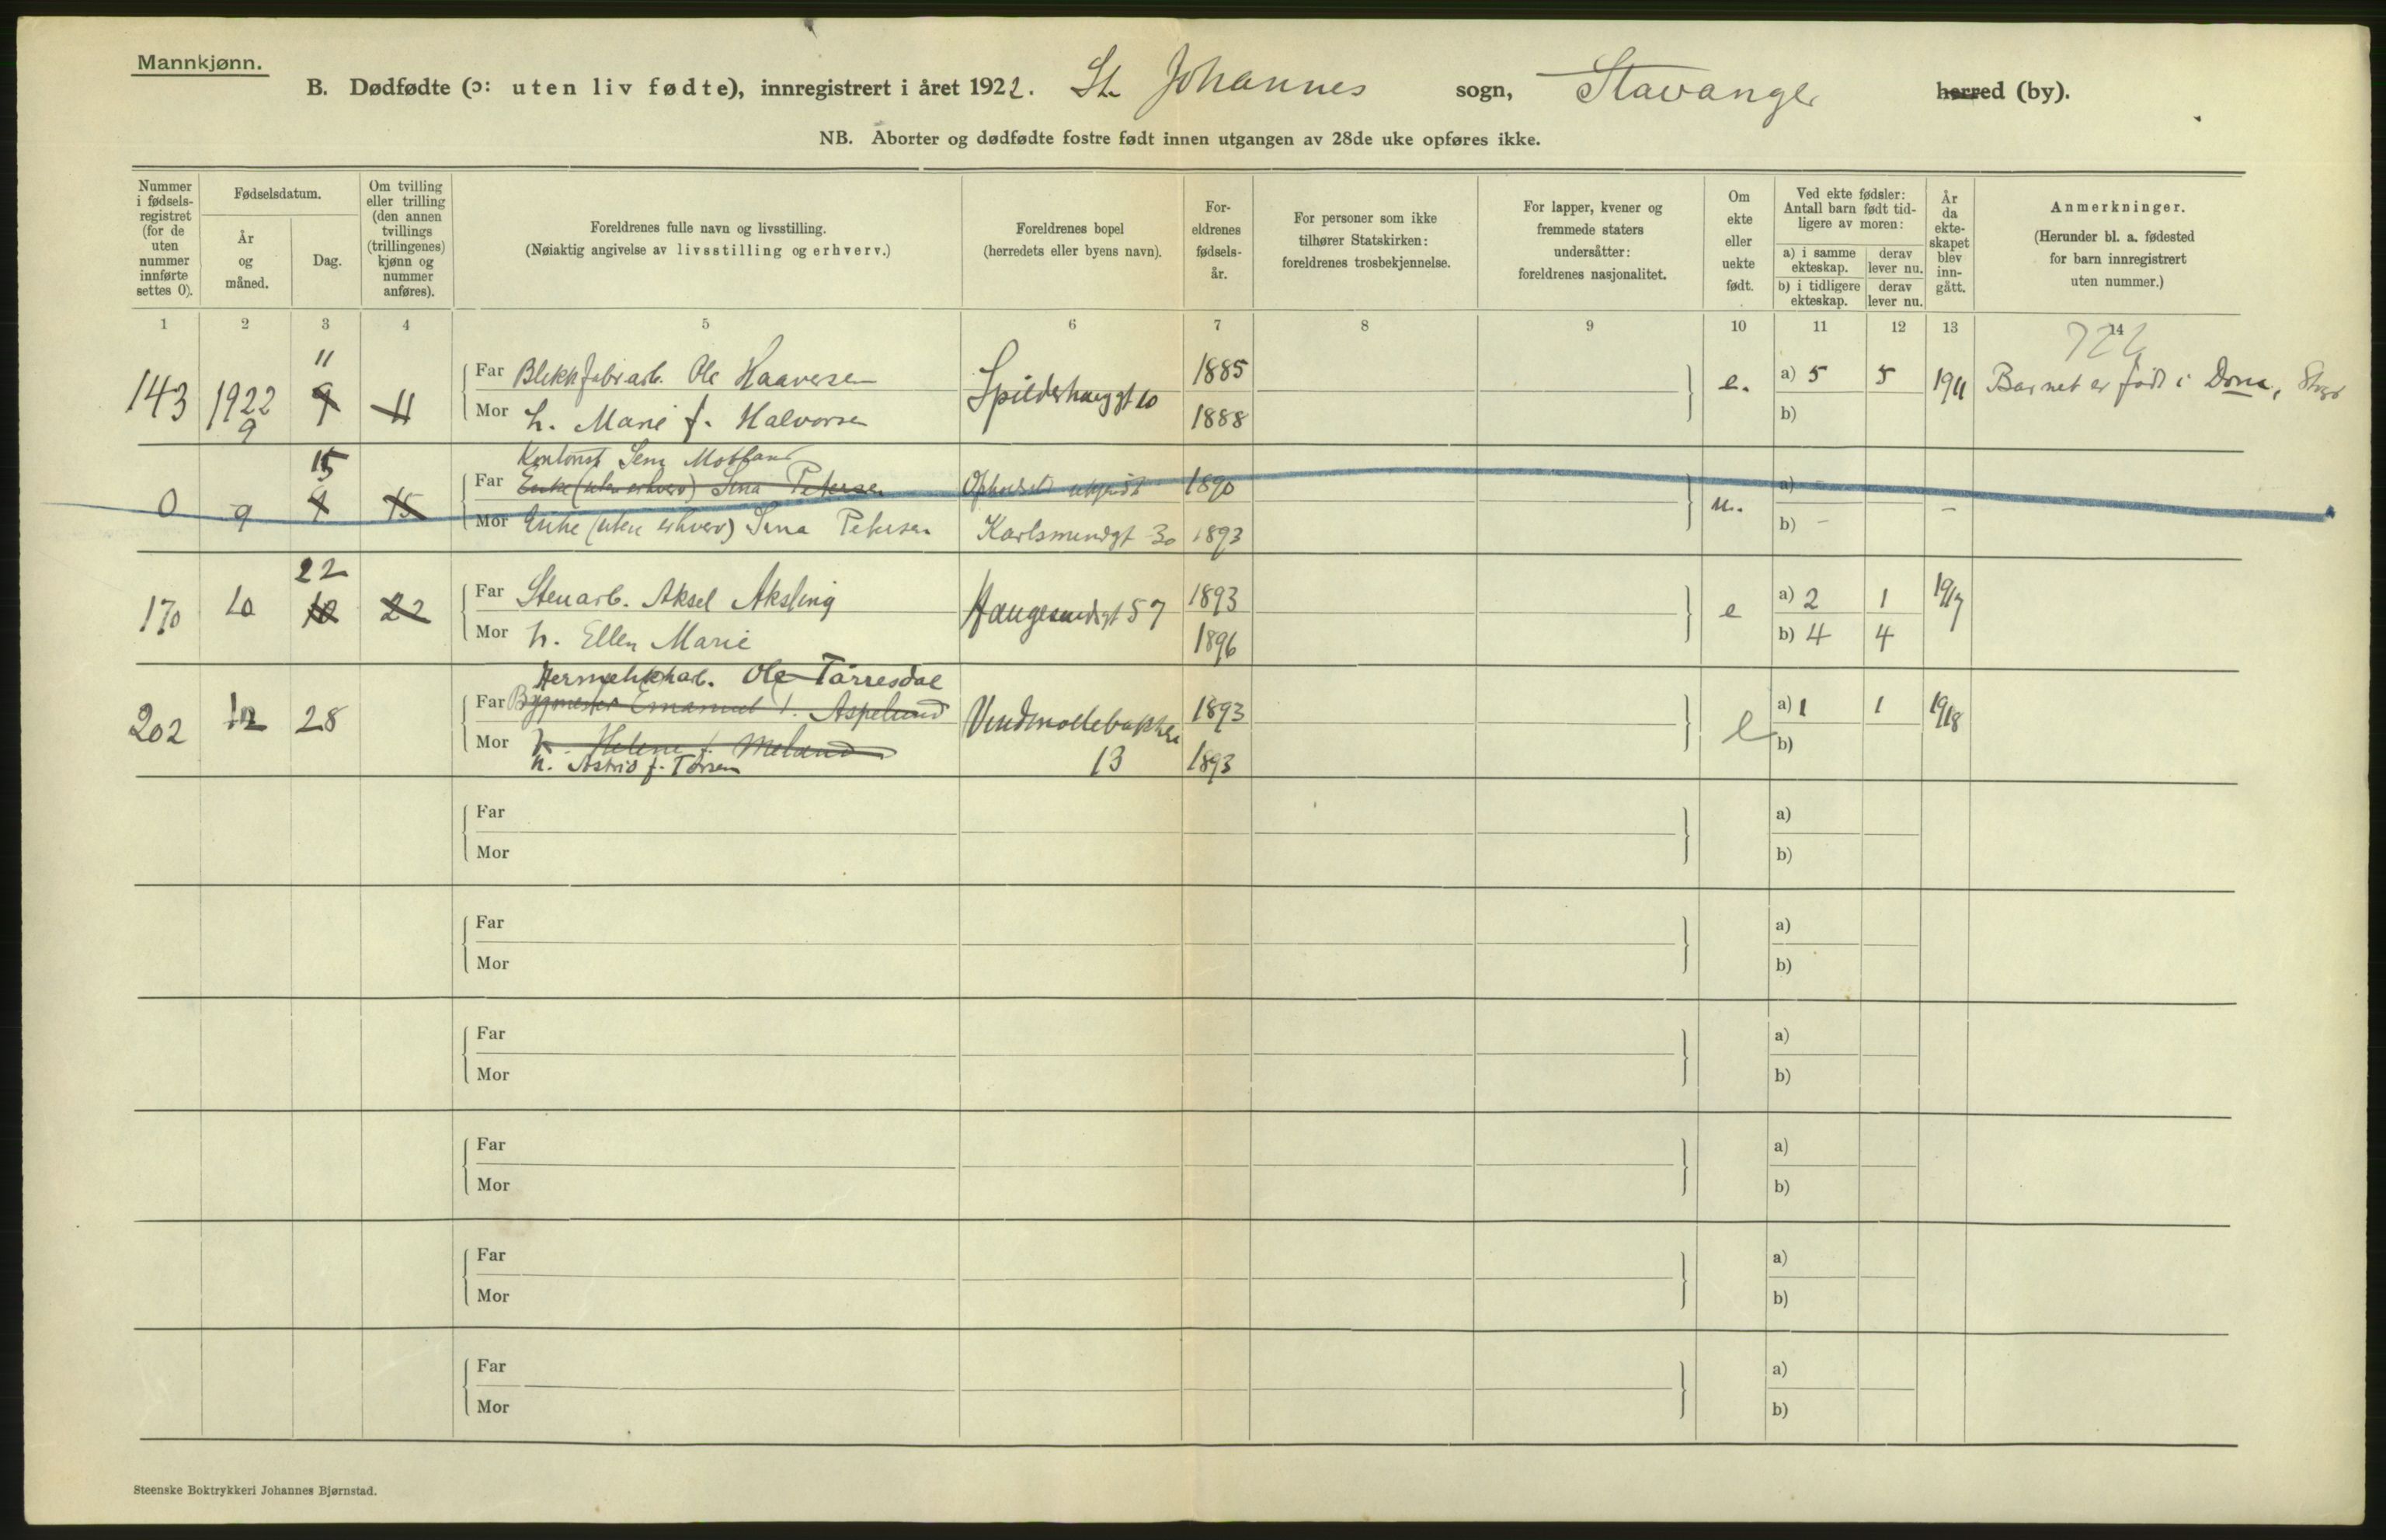 Mannkjønn.
B. Dødfødte (ɔ: uten liv fødte), innregistrert i året 1922. St. Johannes sogn, Stavanger herred (by).
NB. Aborter og dødfødte fostre født innen utgangen av 28de uke opføres ikke.
Nummer i fødsels-registret (for de uten nummer innførte settes 0).
Fødselsdatum.
År og måned.
Dag.
Om tvilling eller trilling (den annen tvillings (trillingenes) kjønn og nummer anføres).
Foreldrenes fulle navn og livsstilling.
(Nøiaktig angivelse av livsstilling og erhverv.)
Foreldrenes bopel
(herredets eller byens navn).
For-eldrenes fødsels-år.
For personer som ikke tilhører Statskirken: foreldrenes trosbekjennelse.
For lapper, kvener og fremmede staters undersåtter: foreldrenes nasjonalitet.
Om ekte eller uekte født.
Ved ekte fødsler: Antall barn født tid-ligere av moren:
a) i samme ekteskap.
derav lever nu.
b) i tidligere ekteskap.
derav lever nu.
År da ekte-skapet blev inn-gått.
Anmerkninger.
(Herunder bl. a. fødested for barn innregistrert uten nummer.)
1 2 3 4 5 6 7 8 9 10 11 12 13 14
143 1922 9 11 9 11
Far Blikkfabrarb. Ole Haaversen
Mor h. Marie f. Halvorsen
Spilderhauggt 10
1885
1888
e.
a) 5 5
b)
1911
Barnet er født i Dona,
0 9 15 9 15
Far Enke (uten erhverv) Sina Petersen
Mor Enke (uten erhverv) Sina Petersen
Opholdst ukjendt 1890
Karlsmindgt 30 1893
u.
a) -
b) - -
170 10 22 10 22
Far Stenarb. Aksel Aksling
Mor h. Ellen Marie
Haugesundsgt 57
1893
1896
e
a) 2 1
b) 4 4
1917
202 12 28
Hermetikkarb. Ole Tårresdal
Far Bygmester Emanuel Aspelund
Mor h. Helene f. Meland
h. Astrid f. Torsen
Vindmøllebakken
13
1893
1893
e
a) 1 1
b)
1918
Far
Mor
a)
b)
Far
Mor
a)
b)
Far
Mor
a)
b)
Far
Mor
a)
b)
Far
Mor
a)
b)
Far
Mor
a)
b)
Steenske Boktrykkeri Johannes Bjørnstad.